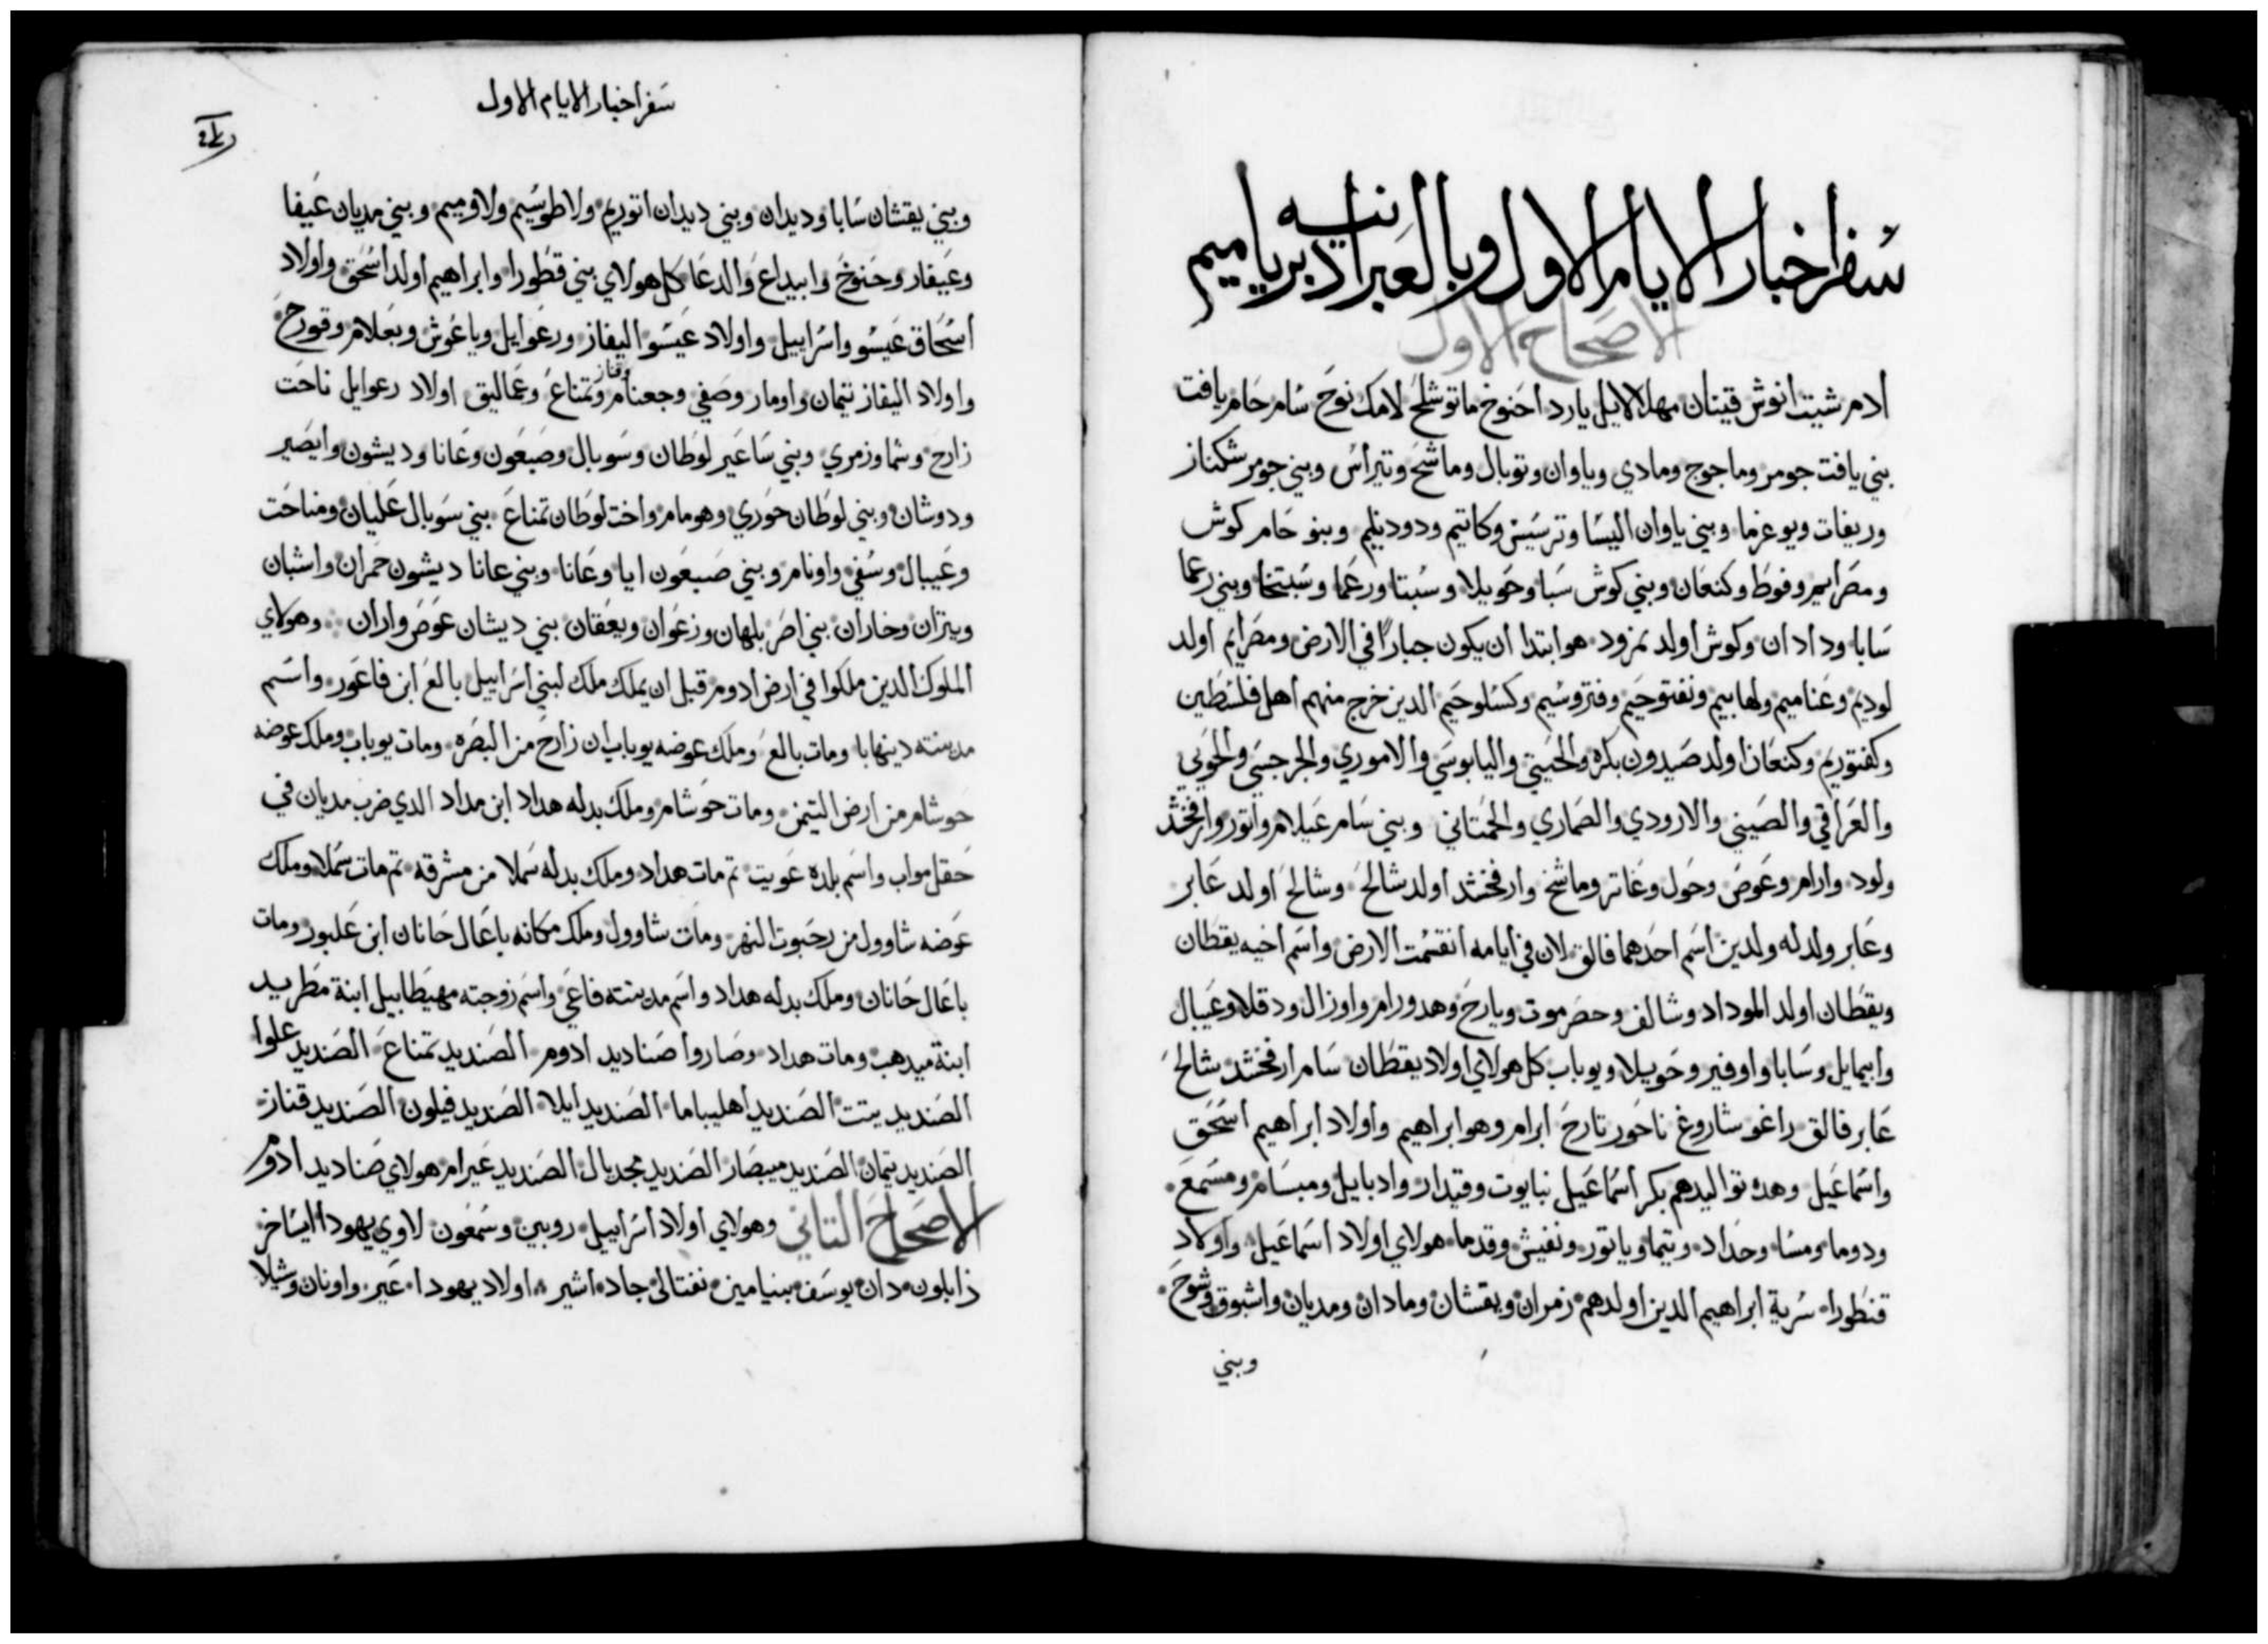 سفر اخبار الايام الاول وبالعبرانيه دبريا ميم
الاصحاح الاول
ادم شيت انوش قينان مهلالايل يارد احنوخ ماتوشلح لامك نوح سام حام يافت
بني يافت جومر وماجوج ومادي وياوان وتوبال وماشح وتيراس وبني جومر شكناز
وريفات ويوغرما وبني ياوان اليسا وترسيس وكاتيم ودودنيم وبنو حام كوش
ومصرايم وفوط وكنعان وبني كوش سبا وحويلا وسبتا ورعما وسبتخا وبني رعما
سابا ودادان وكوش اولد نمرود هو ابتدا ان يكون جبارًا في الارض ومصرايم اولد
لوديم وعناميم ولهابيم ونفتوحيم وفتروسيم وكسلوحيم الدين خرج منهم اهل فلسطين
وكفتوريم وكنعان اولد صيدون بكره والحيتي واليابوسي والاموري والجرجسي والحوي
والعراقي والصيني والارودي والصماري والحمتاني وبني سام عيلام واتور وارفخشد
ولود وارام وعوص وحول وغاتر وماشخ وارفخشد اولد شالح وشالح اولد عابر
وعابر ولد له ولدين اسم احدهما فالق لان في ايامه انقسمت الارض واسم اخيه يقطان
ويقطان اولد الموداد وشالف وحصرموت ويارح وهدورام واوزال ودقلا وعيبال
وابيمايل وسابا واوفير وحويلا ويوباب كل هولاي اولاد يقطان سام ارفخشد شالح
عابر فالق راغو شاروغ ناحور تارح ابرام وهو ابراهيم واولاد ابراهيم اسحق
واسماعيل وهده تواليدهم بكر اسماعيل نبايوت وقيدار وادبايل ومبسام ومسمع
ودوما ومسا وحداد وتيما وياتور ونفيش وقدما هولاي اولاد اسماعيل واولاد
قنطورا سرية ابراهيم الدين اولدهم زمران ويقشان ومادان ومديان واشبوق وشوح
وبني
سفر اخبار الايام الاول
وبني يقشان سابا وديدان وبني ديدان اتوريم ولاطوسيم ولاوميم وبني مديان عيفا
وعيفار وحنوخ وابيداع والدعا كل هولاي بني قطورا وابراهيم اولد اسحق واولاد
اسحاق عيسو واسراييل واولاد عيسو اليفاز ورعوايل وياعوش ويعلام وقورح
واولاد اليفاز تيمان واومار وصفي وجعنام وقناز وتمناع وعماليق اولاد رعوايل ناحت
زارح وشما وزمري وبني ساعير لوطان وسوبال وصبعون وعانا وديشون وايصير
ودوشان وبني لوطان حوري وهومام واخت لوطان تمناع بني سوبال عليان ومناحت
وعيبال وسفي واونام وبني صبعون ايا وعانا وبني عانا ديشون حمران واشبان
ويتران وخاران بني اصر بلهان وزعوان ويعقان بني ديشان عوص واران وهولاي
الملوك الدين ملكوا في ارض ادوم قبل ان يملك ملك لبني اسراييل بالع ابن فاعور واسم
مدينته دينهابا ومات بالع وملك عوضه يوباب ابن زارح من البصره ومات يوباب وملك عوضه
حوشام من ارض التيمن ومات حوشام وملك بدله هداد ابن مداد الدي ضرب مديان في
حقل مواب واسم بلده عويت تم مات هداد وملك بدله سملا من مشرقه تم مات سملا وملك
عوضه شاوول من رحبوت النهر ومات شاوول وملك مكانه باعال حانان ابن علبور ومات
باعال حانان وملك بدله هداد واسم مدينته فاعي واسم زوجته مهيطابيل ابنة مطريد
ابنة ميدهب ومات هداد وصاروا صناديد ادوم الصنديد تمناع الصنديد علوا
الصنديد يتت الصنديد اهليباما الصنديد ايلا الصنديد فيلون الصنديد قناز
الصنديد تيمان الصنديد ميبصار الصنديد مجديال الصنديد عيرام هولاي صناديد ادوم
الاصحاح التاني وهولاي اولاد اسراييل روبين وسمعون لاوي يهودا ايساخر
زابلون دان يوسف بنيامين نفتالى جاد اشير اولاد يهودا عير واونان وشيلا